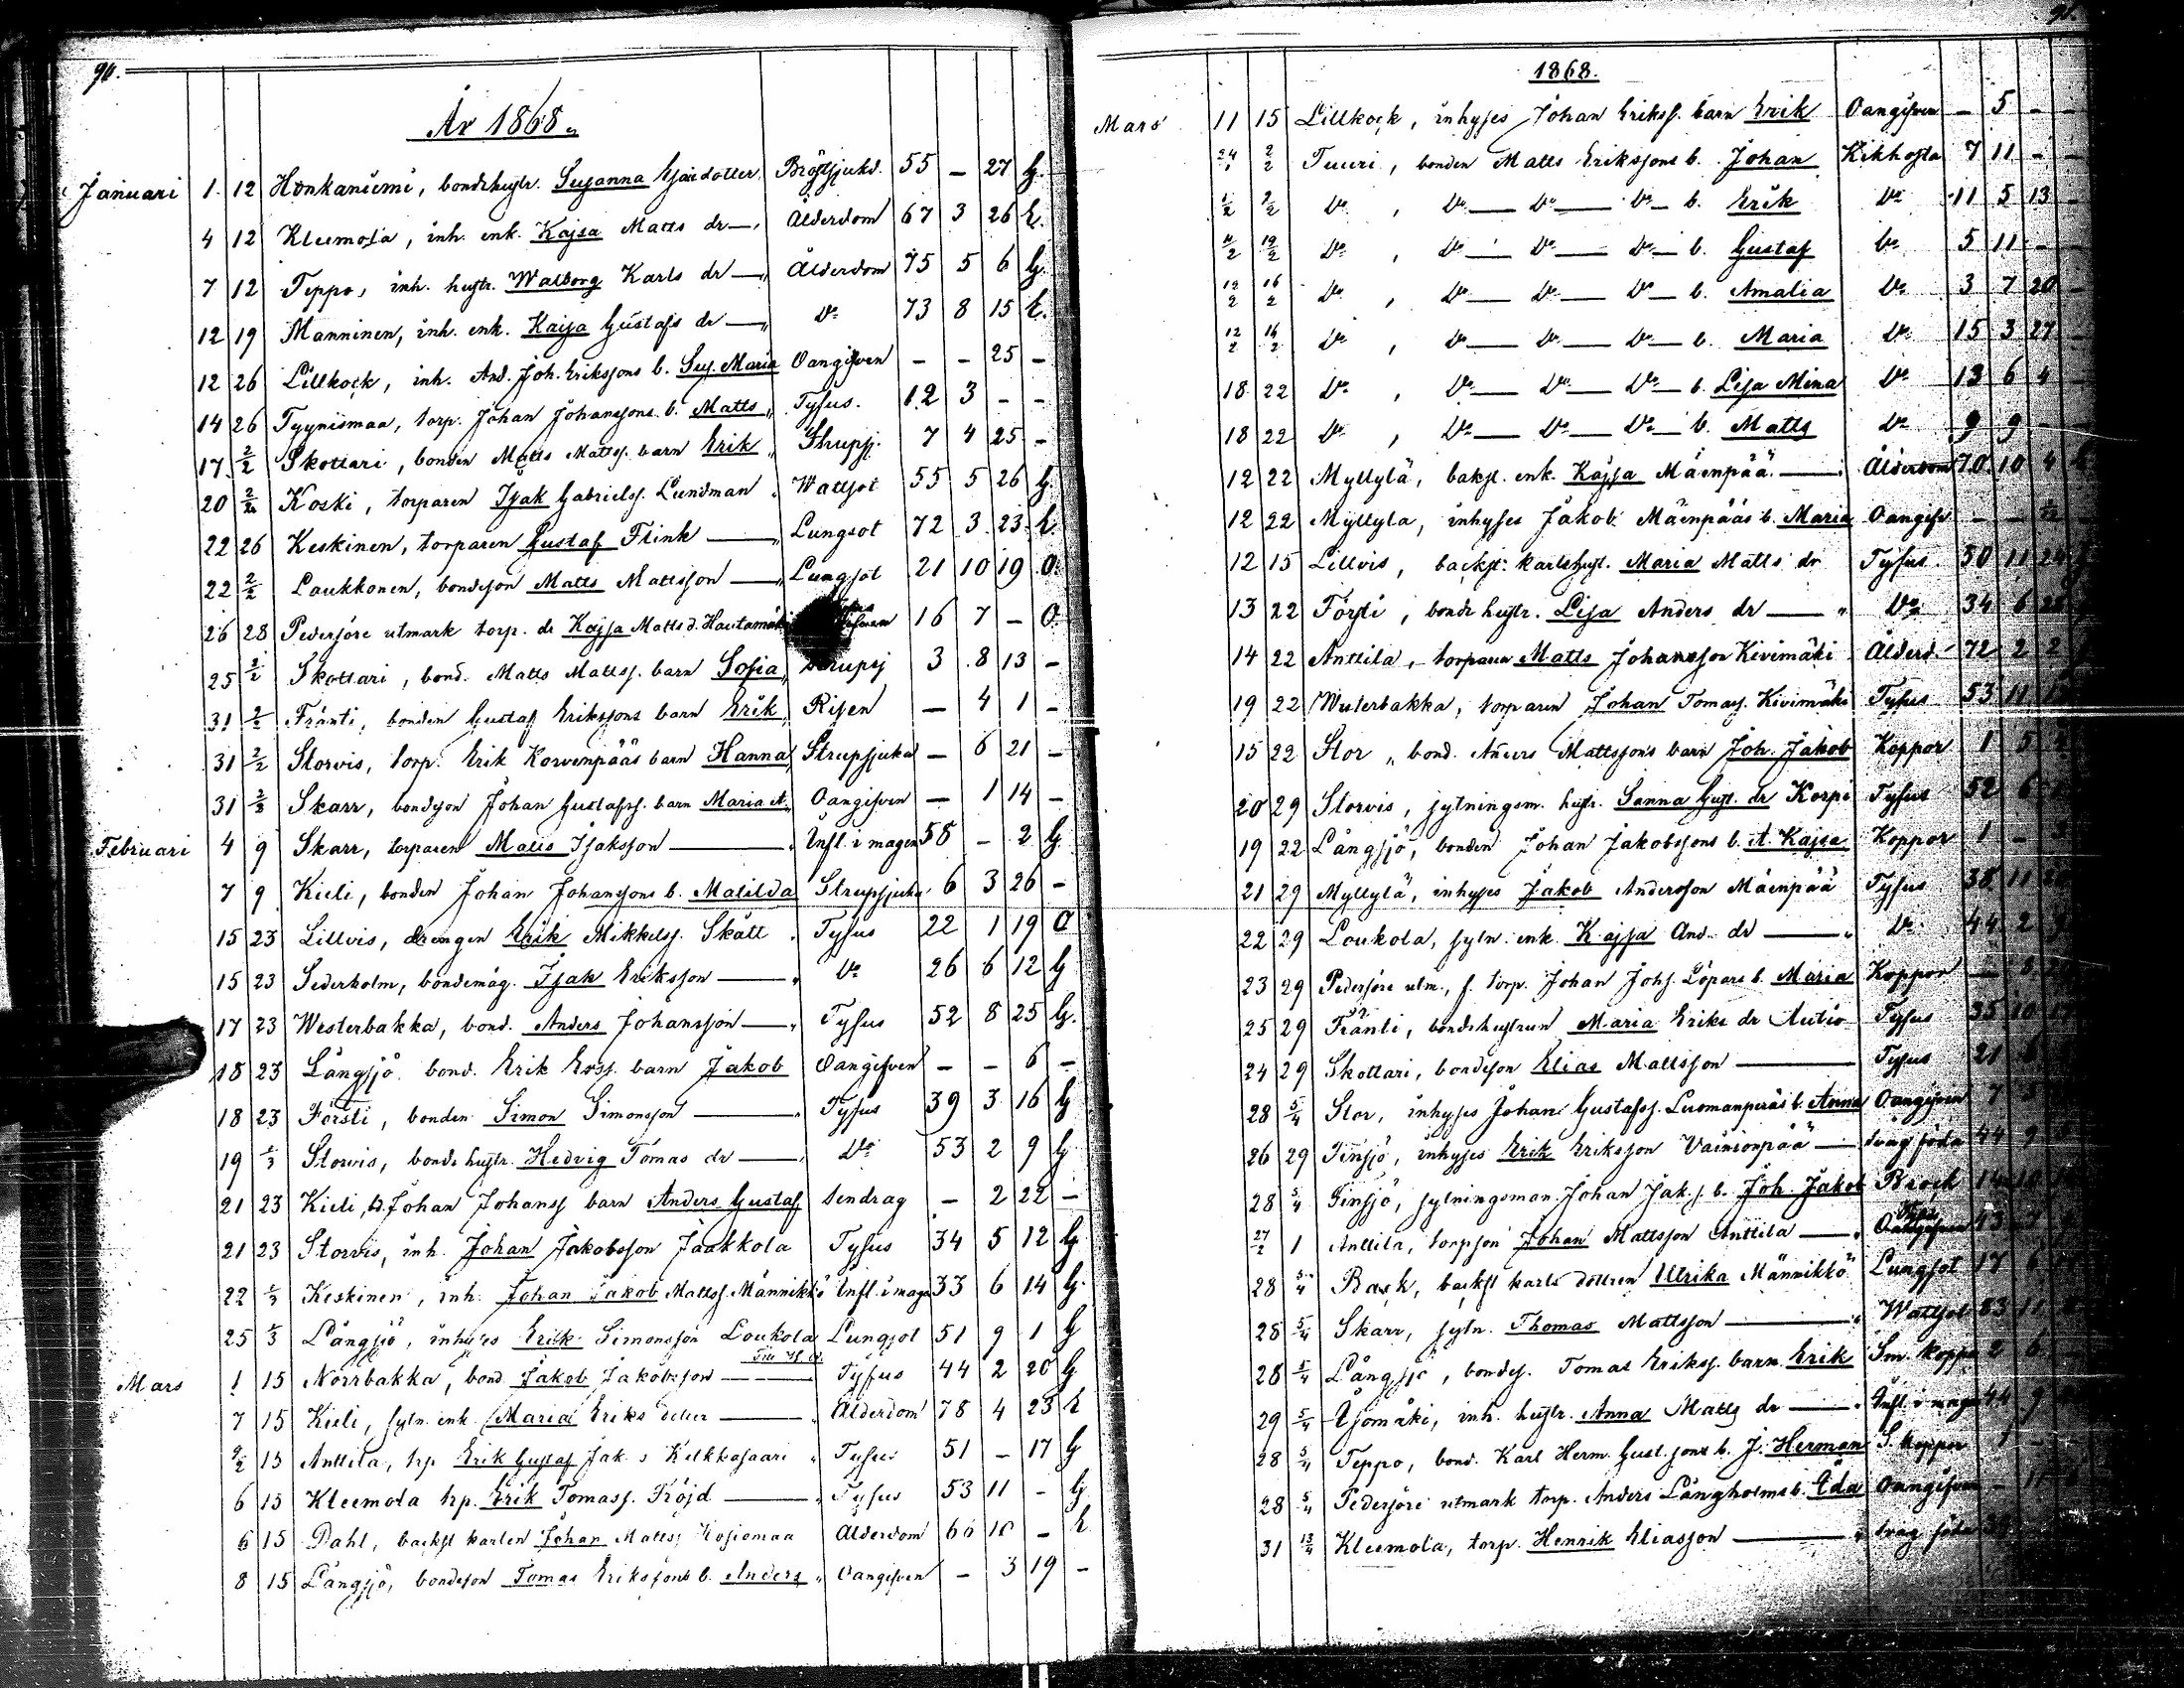 90.
År 1868.
Januari 1. 12 Honkaniemi, bondehustr. Susanna Esaidotter Bröstsjukd. 55 – 27 G.
4 12 Kleemola, inh. enk. Kajsa Matts dr Ålderdom 67 3 26 E.
7 12 Teppo, inh. hustr. Walborg Karls dr Ålderdom 75 5 6 G.
12 19 Manninen, inh. enk. Kajsa Gustafs dr Do 73 8 15 E.
12 26 Lillkock, inh. And. Joh. Erikssons b. Sus. Maria Oangifven – – 25 –
14 26 Tyynismaa, torp. Johan Johanssons b. Matts Tyfus. 12 3 – –
17 2/2 Skottari, bonden Matts Matts. barn Erik Strupsj. 7 4 25 –
20 2/2 Koski, torparen Isak Gabrielss. Lundman Wattsot 55 5 26 G.
22 26 Keskinen, torparen Gustaf Flink Lungsot 72 3 23 E.
22 2/2 Laukkonen, bondeson Matts Mattsson Lungsot 21 10 19 O.
26 28 Pedersöre utmark torp. dr Kajsa Matts d. Hautamäki 16 7 – O
25 2/2 Skottari, bond. Matts Matts. barn Sofia Strupsj 3 8 13 –
31 2/2 Fränti, bonden Gustaf Erikssons barn Erik Risen – 4 1 –
31 2/2 Storvis, torp. Erik Korvenpääs barn Hanna Strupsjuka – 6 21 –
31 2/2 Skarr, bondson Johan Gustafss. barn Maria A. Oangifven – 1 14 –
Februari 4 9 Skarr, torparen Matts Isaksson Infl. i magen 58 – 2 G
7 9 Kieli, bonden Johan Johanssons b. Matilda Strupsjuka 6 3 26 –
15 23 Lillvis, drengen Erik Mikkelss. Skatt Tyfus 22 1 19 O
15 23 Sederholm, bondemåg. Isak Eriksson Do 26 6 12 G
17 23 Westerbakka, bond. Anders Johansson Tyfus 52 8 25 G.
18 23 Långsjö bond. Erik Erss. barn Jakob Oangifven – – 6 –
18 23 Försti, bonden Simon Simonsson Tyfus 39 3 16 G
19 1/3 Storvis, bonde hustr. Hedvig Tomas dr Do 53 2 9 G
21 23 Kieli, b. Johan Johanss barn Anders Gustaf Sendrag – 2 22 –
21 23 Storvis, inh. Johan Jakobsson Jaakkola Tyfus 34 5 12 G
22 1/3 Keskinen, inh. Johan Jakob Matts. Männikkö Infl. i mage 33 6 14 G
25 1/3 Långsjö, inhyses Erik Simonsson Loukola Lungsot 51 9 1 G
Mars 1 15 Norrbakka, bond. Jakob Jakobsson Tyfus 44 2 20 G
7 15 Kieli, sytn. enk. Maria Eriks dotter Ålderdom 78 4 23 E
9/2 15 Anttila, trp Erik Gustaf Jak. s Kelkkasaari Tyfus 51 – 17 G
6 15 Kleemola trp. Erik Tomass. Fröjd Tyfus 53 11 – G
6 15 Dahl, backst karlen Johan Matts. Kosiomaa Ålderdom 66 10 – E
8 15 Långsjö, bondeson Tomas Erikssons b. Anders Oangifven – 3 19 –
91.
1868.
Mars 11 15 Lillkock, inhyses Johan Erikss. barn Erik Oangifven – 5 – –
24/1 2/2 Tuuri, bonden Matts Erikssons b. Johan Kikhosta 7 11 – –
1/2 2/2 Do, Do Do Do b. Erik Do 11 5 13 –
11/2 19/2 Do, Do Do b. Gustaf Do 5 11 – –
12/2 16/2 Do, Do Do Do b. Amalia Do 3 7 20 –
12/2 16/2 Do, Do Do Do b. Maria Do 15 3 27 –
18 22 Do, Do Do Do b. Lisa Mina Do 13 6 4 –
18 22 Do, Do Do Do b. Matts Do 9 9 – –
12 22 Myllylä, bakst. enk. Kajsa Mäenpää Ålderdom 70 10 4
12 22 Myllylä, inhyses Jakob Mäenpääs b. Maria Oangifv – –
12 15 Lillvis, backst: karlshust. Maria Matts dr Tyfus 50 11 24
13 22 Försti, bonde hustr. Lisa Anders dr Do 34 6
14 22 Anttila, torparen Matts Johansson Kivimäki Ålderd. 72 2 2
19 22 Westerbakka, torparen Johan Tomass. Kivimäki Tyfus 53 11
15 22 Stor, bond. Anders Mattssons barn Joh. Jakob Koppor 1 5
20 29 Storvis, sytningsm. hustr. Sanna Gust. dr Korpi Tyfus 52 6
19 22 Långsjö, bonden Johan Jakobssons b. A. Kajsa Koppor 1 –
21 29 Myllylä, inhyses Jakob Andersson Mäenpää Tyfus 38 11
22 29 Loukola, sytn. enk. Kajsa And. dr Do 44 2
23 29 Pedersöre utm., f. torp. Johan Johs. Löpars b. Maria Koppor – 8
25 29 Fränti, bondehustrun Maria Eriks dr Autio Tyfus 35 10
24 29 Skottari, bondeson Elias Mattsson Tyfus 21 6
28 5/4 Stor, inhyses Johan Gustafss. Luomanperäs b. Anna Oangifven 7
26 29 Sinsjö, inhyses Erik Eriksson Vainionpää svag föda 44 9
28 5/4 Sinsjö, sytningsman Johan Jak.s. b. Joh. Jakob Brock 14
27/2 1 Anttila, torpson Johan Mattsson Anttila Oangifven 43
28 5/4 Back, backst karls dottren Ulrika Männikkö Lungsot 17 6
28 5/4 Skarr, sytn. Thomas Mattsson Wattsot 83 11
28 5/4 Långsjö, bondes. Tomas Erikss. barn Erik Sm. koppor 2 6
29 5/4 Åsomäki, inh. hustr. Anna Matts dr Infl. i mage 44 9
28 5/4 Teppo, bond. Karl Herm. Gust.sons b. J. Herman S. koppor 1
28 5/4 Pedersöre utmark torp. Anders Långholms b. Ida Oangifven –
31 13/4 Kleemola, torp. Henrik Eliasson svag föda